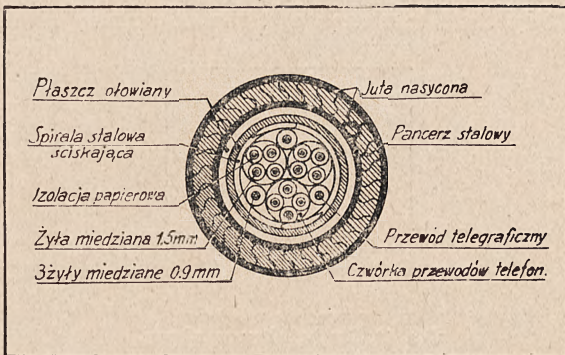 Płaszcz ołowiany
Spirala stalowa
ściskająca
Izolacja papierowa
Żyła miedziana 1.5mm
3żyły miedziane 0.9mm
Juta nasycona
Pancerz stalowy
Przewód telegraficzny
Czwórka przewodów telefon.